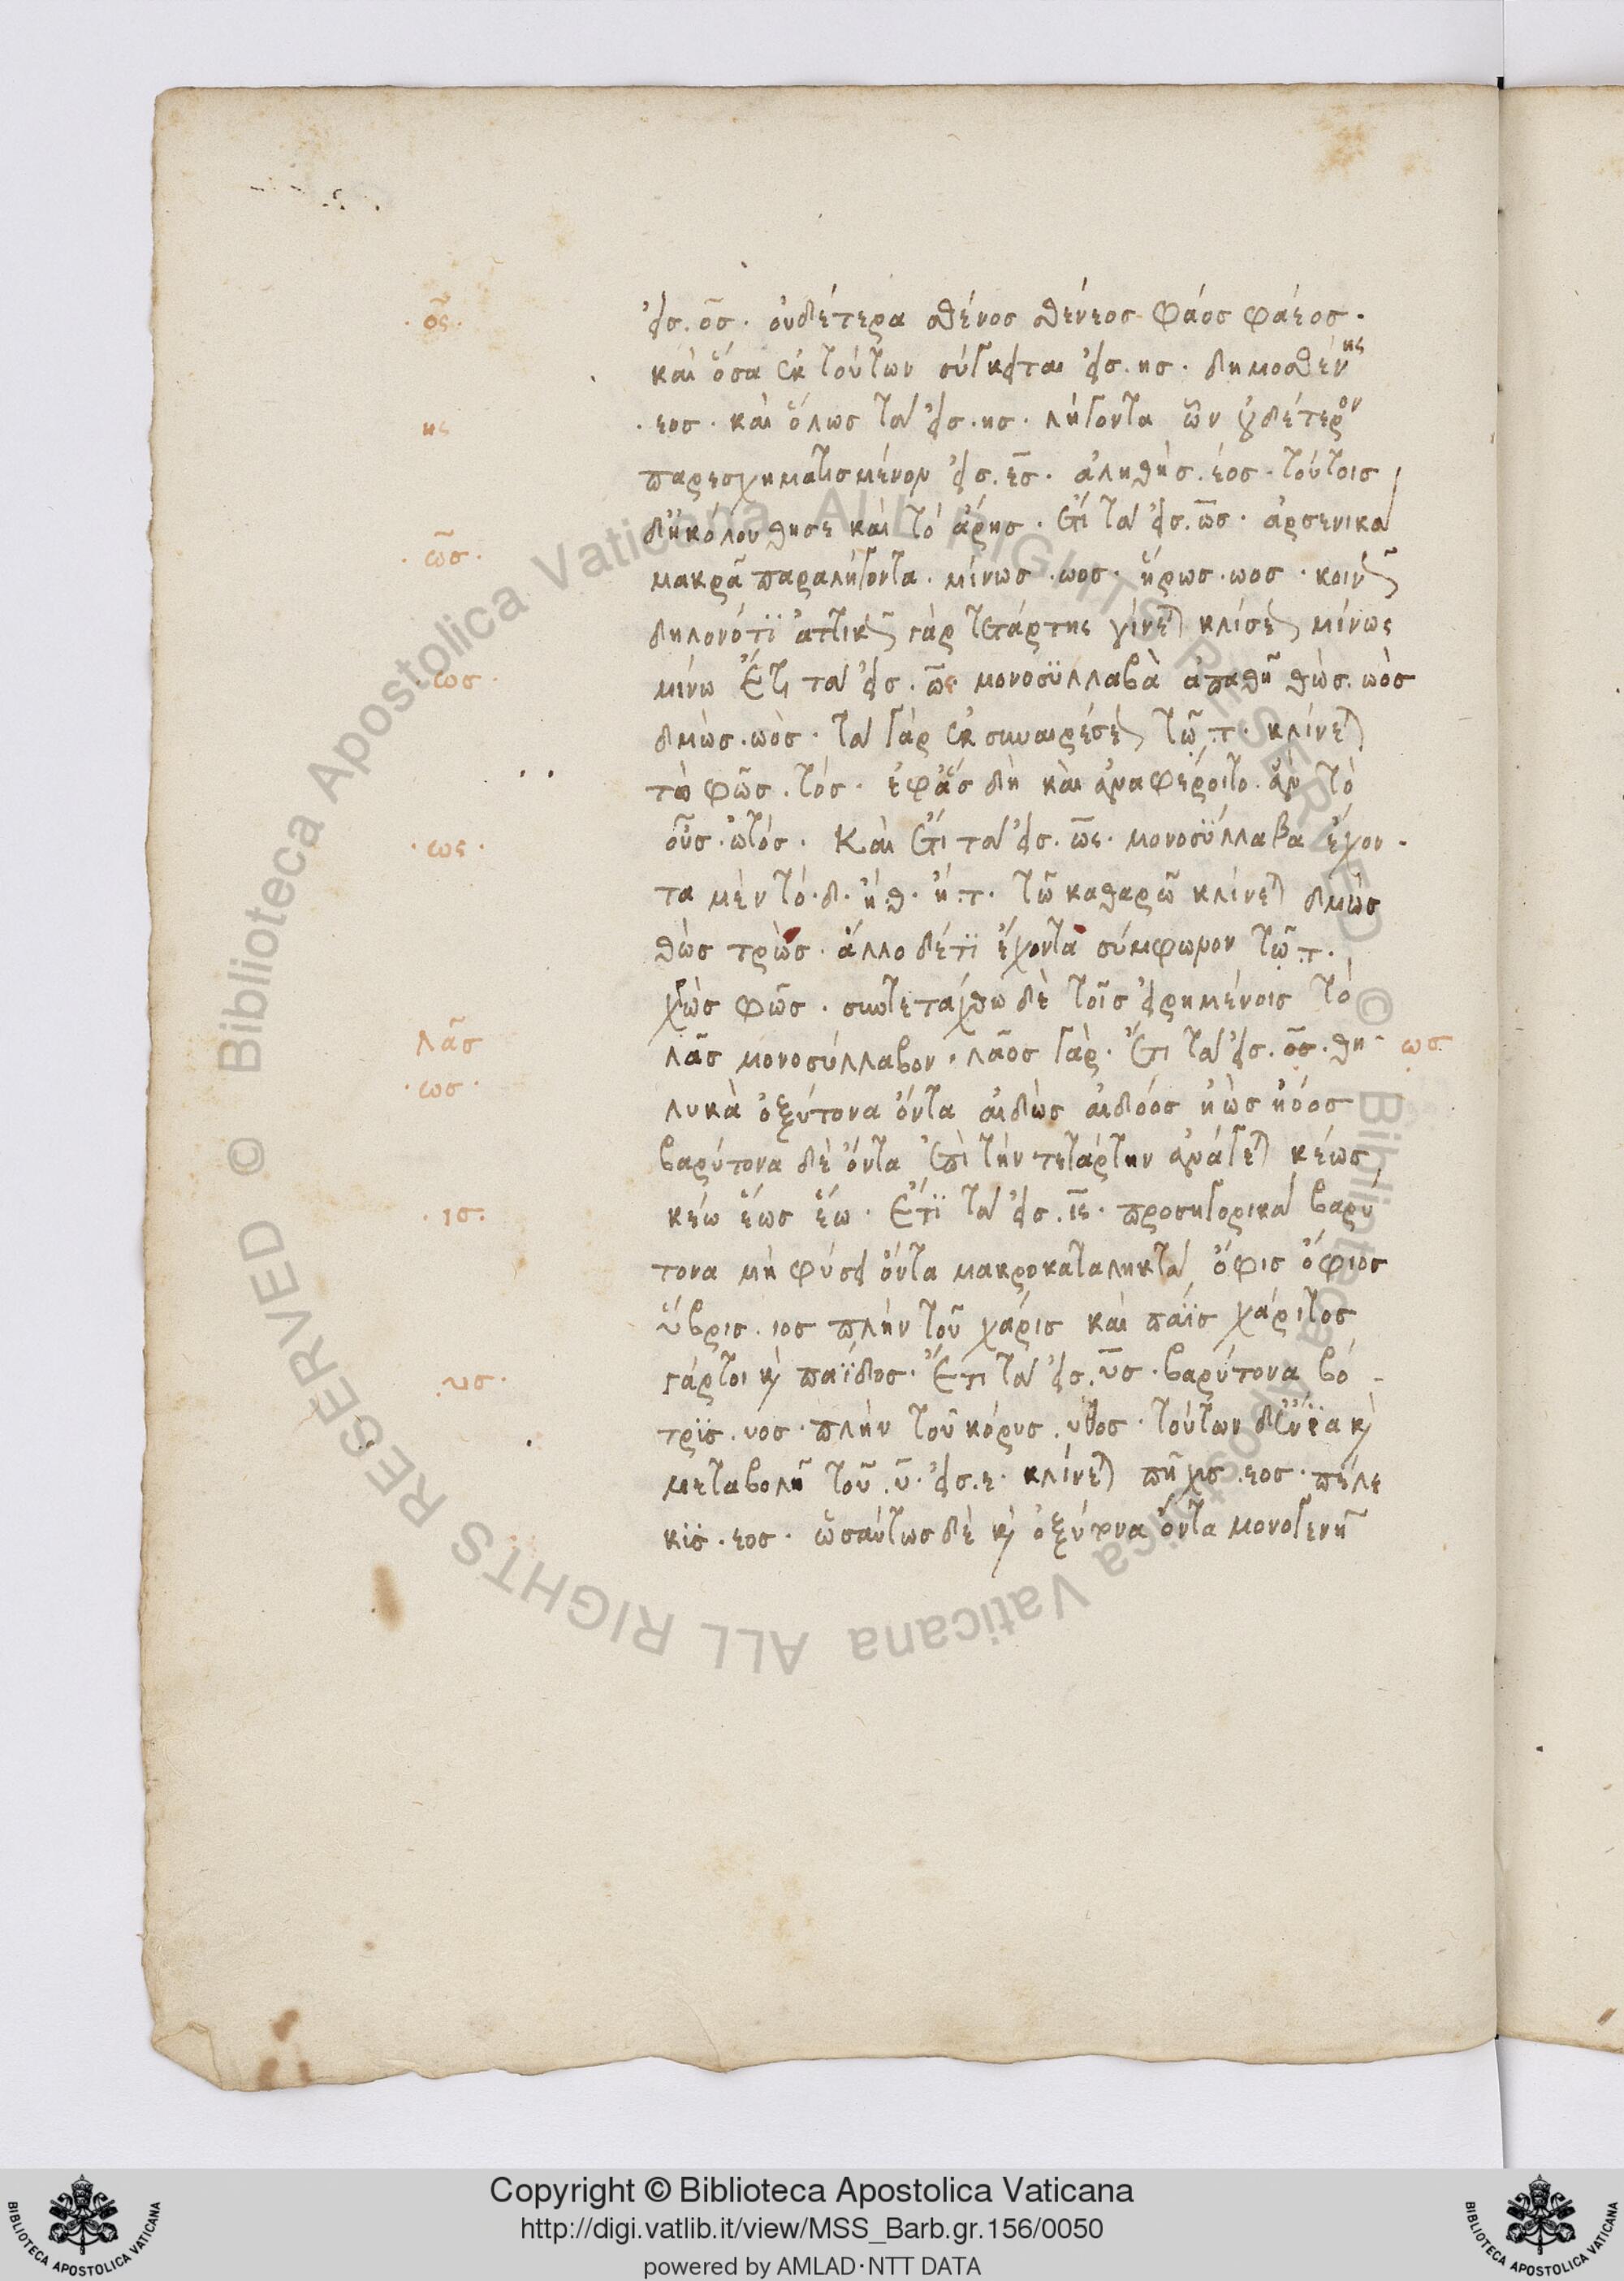 · ος ·
εἰς. ος · οὐδέτερα σθένος σθένεος φάος φάεος ·
καὶ ὅσα ἐκ τούτων σύγκειται εἰς. ης · δημοσθένης
ης
· εος · καὶ ὅλως τὰ εἰς · ης · λήγοντα ὧν οὐδέτερον
παρεσχηματισμένον εἰς. ες · ἀληθὴς. έος · τούτοις
δὴ κόλουθησε καὶ τὸ ἄρης · ἔτι τὰ εἰς. ως · ἀρσενικὰ
· ως ·
μακρᾶ παραλήγοντα · μίνως · ωος · ἥρως · ωος · κοινῶς
δηλονότι ἀττικῶς γὰρ τετάρτης γίνεται κλίσεως μίνως
· ως ·
μίνω ἔτι τὰ εἰς. ως μονοσύλλαβα ἀπαθῆ θὼς. ωὸς
δμὼς · ωὸς · τὰ γὰρ ἐκ συναιρέσεως τῶ τ · κλίνεται
τὸ φῶς. τός · ἐφ' ἃς δὴ καὶ ἀναφέροιτο ἂν τὸ
· ως ·
οὖς · ὠτός · Καὶ ἔτι τὰ εἰς. ως · μονοσύλλαβα ἔχον -
τα μὲν τὸ · δ · ἢ · θ · ἢ · τ · τῶ καθαρῶ κλίνεται δμὼς
θὼς τρὼς · ἄλλο δέ τι ἔχοντα σύμφωνον τῶ τ ·
χρὼς φῶς · συντετάχθω δὲ τοῖς εἰρημένοις τὸ
λᾶς
λᾶς μονοσύλλαβον · λᾶος γὰρ · ἔτι τὰ εἰς. ος · θη - ως
· ως ·
λυκὰ ὀξύτονα ὄντα αἰδὼς αἰδόος ἠὼς ἠόος
βαρύτονα δὲ ὄντα ἐπὶ τὴν τετάρτην ἀνάγεται κέως
· ις ·
κέω ἕως ἕω · Ἔτι τὰ εἰς. ις · προσηγορικὰ βαρύ
τονα μὴ φύσει ὄντα μακροκατάληκτα ὄφις ὄφιος
ὕβρις · ιος πλὴν τοῦ χάρις καὶ πάϊς χάριτος
· υς ·
γάρτοι καὶ παϊδος · Ἔτι τὰ εἰς. υς · βαρύτονα βό -
τρϋς · υος · πλὴν τοῦ κόρυς · υθος · τούτων δ' ἔνια καὶ
μεταβολῆ τοῦ · υ · εἰς · ε · κλίνεται πῆχυς · εος · πέλε
κϋς · εος · ὡσαύτως δὲ καὶ ὀξύτονα ὄντα μονογενῆ
Copyright © Biblioteca Apostolica Vaticana
http://digi.vatlib.it/view/MSS_Barb.gr.156/0050
powered by AMLAD·NTT DATA
BIBLIOTECA APOSTOLICA VATICANA
BIBLIOTECA APOSTOLICA VATICANA
© Biblioteca Apostolica Vaticana ALL RIGHTS RESERVED
© Biblioteca Apostolica Vaticana ALL RIGHTS RESERVED